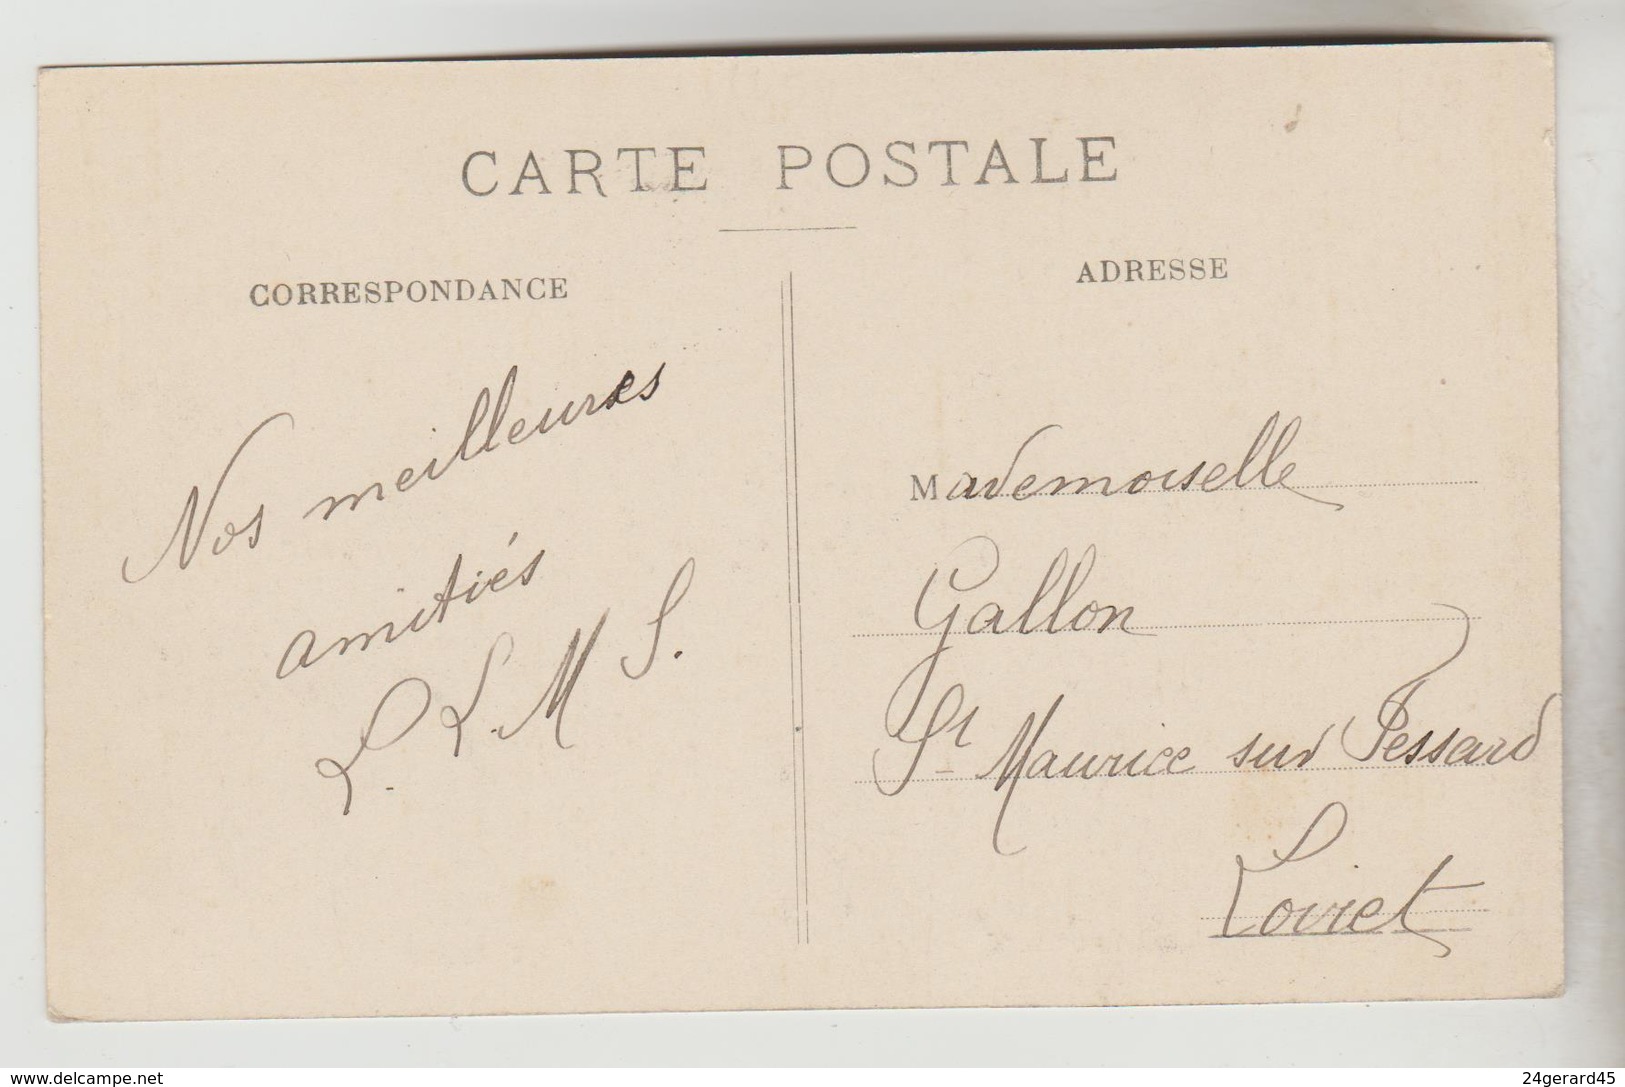 CARTE POSTALE
CORRESPONDANCE
ADRESSE
Nos meilleures
amitiés
L. L. M S.
Mademoiselle
Gallon
St Maurice sur Fessard
Loiret
www.delcampe.net
24gerard45